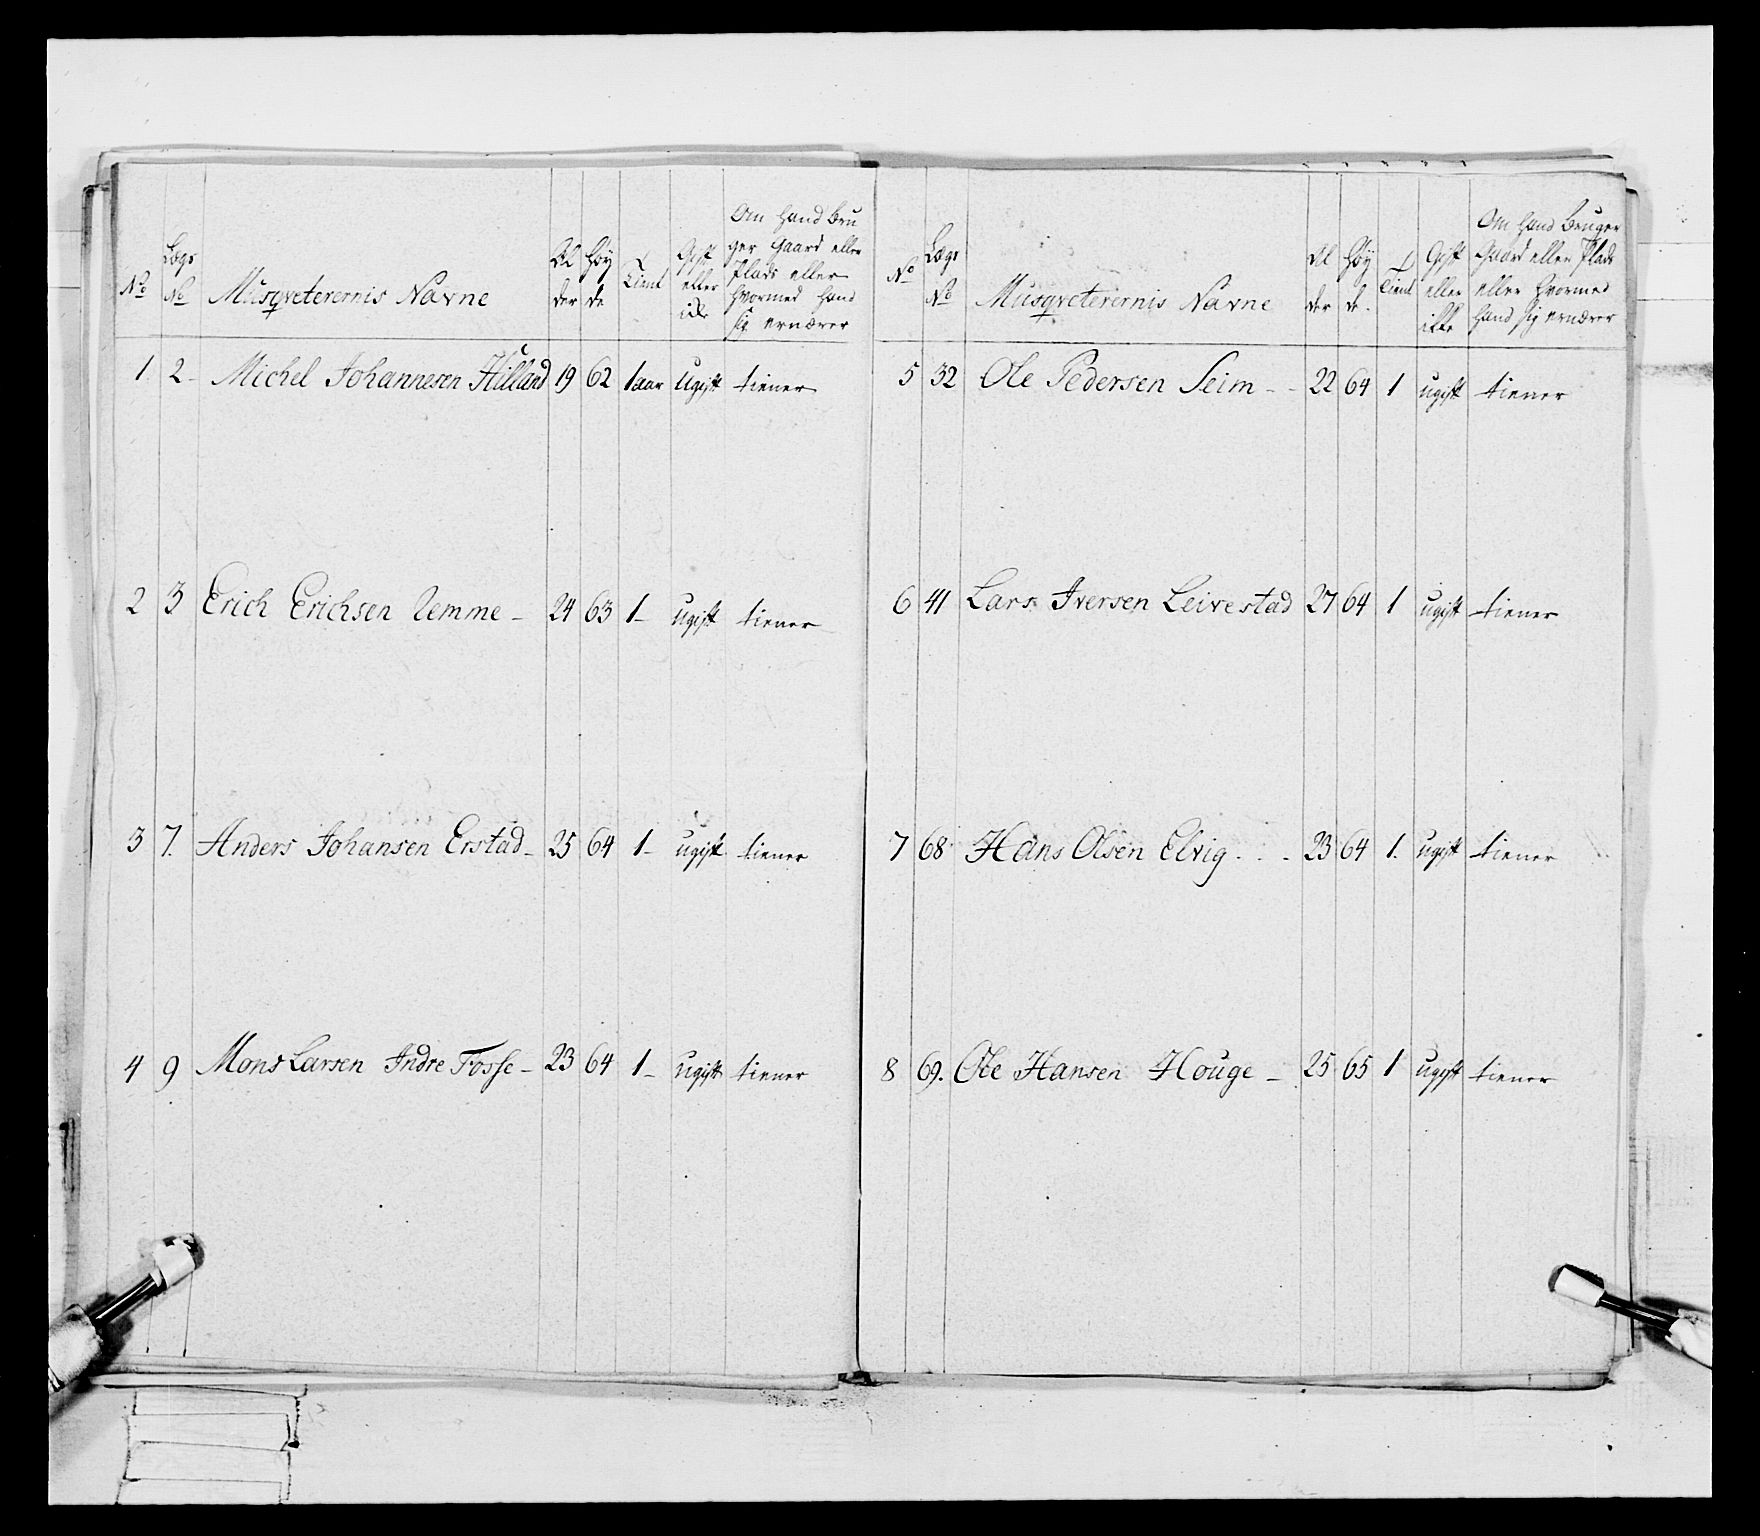 No Lægs No Musqveterernis Navne Alder Høyde Tient Gift eller ikke Om Hand Bruger Gaard eller Plads eller Hvormed Hand sig ernærer
1 2 Michel Johannesen Hilland 19 62 1 aar ugift tiener
2 3 Erich Erichsen Uemme 24 63 1 ugift tiener
3 7. Anders Johansen Erstad 25 64 1 ugift tiener
4 9 Mons Larsen Indre Fosse 23 64 1 ugift tiener
No Lægs No Musqveterernis Navne Alder Høyde. Tient Gift eller ikke Om Hand Bruger Gaard eller Plads eller Hvormed Hand sig ernærer
5 32 Ole Pedersen Seim 22 64 1 ugift tiener
6 41 Lars Iversen Leivestad 27 64 1 ugift tiener
7 68 Hans Olsen Elvig 23 64 1. ugift tiener
8 69. Ole Hansen Houge 25 65 1 ugift tiener